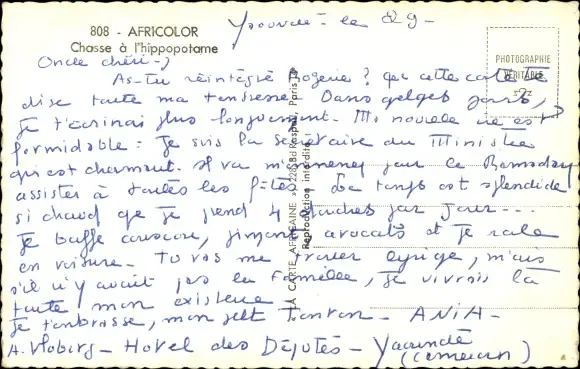 808 - AFRICOLOR
Chasse à l'hippopotame
Yaoundé - le 29 -
PHOTOGRAPHIE
VÉRITABLE
Oncle chéri -
As-tu réintégré ? que cette carte te
dise toute ma tendresse. Dans qelqes jours,
je t'écrirai plus longuement. Ma nouvelle vie est
formidable : je suis la secrétaire du Ministre
qui est charmant. Il va m'emmener pour le Ramadan
assister à toutes les fêtes. Le temps est splendide
si chaud que je prend 4 douches par jour...
Je buffe couscou, piment, avocats et je roule
en voiture. Tu vas me trouver, mais
s'il n'y avait pas la famille, je vivrais là
toute mon existence.
Je t'embrasse, mon petit Tonton. - ANIA -
A. - Hotel des Députés - Yaoundé
(Cameroun)
LA CARTE AFRICAINE
Reproduction interdite